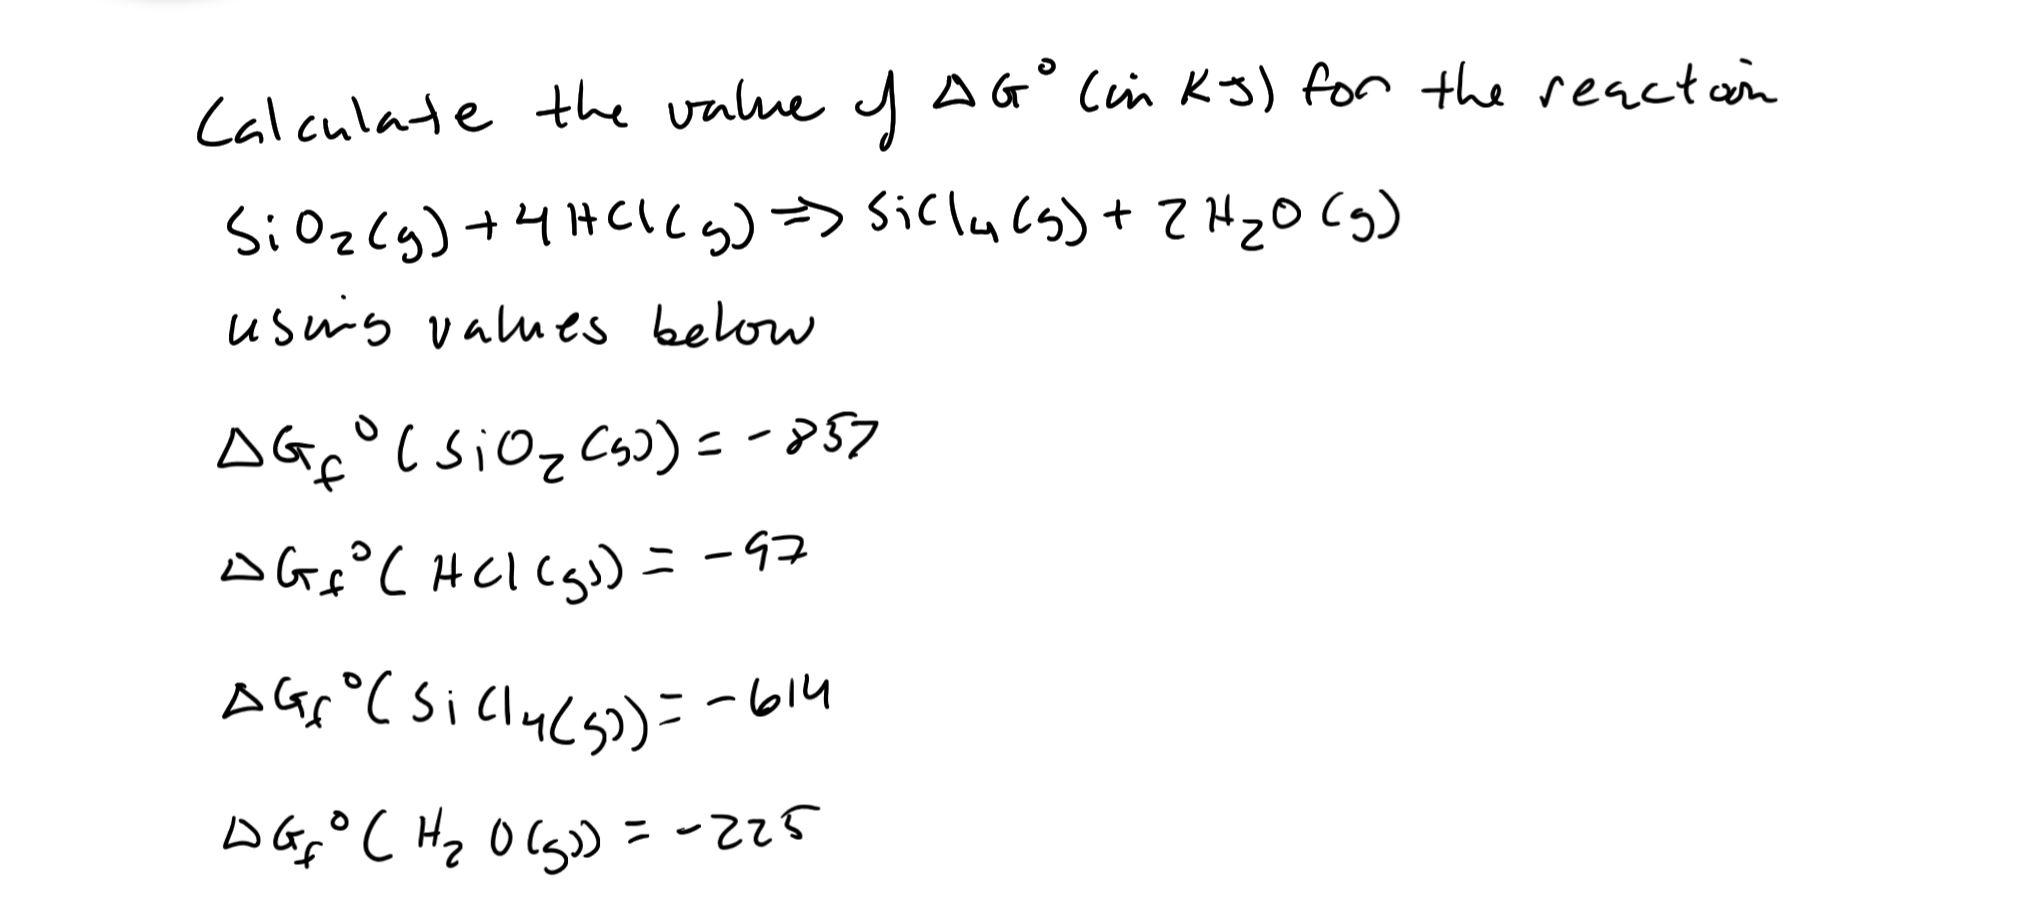 Calculate the value of ΔG° (in KJ) for the reaction
SiO₂(g) + 4HCl(g) ⇒ SiCl₄(g) + 2H₂O(g)
using values below
ΔGf°(SiO₂(g)) = -857
ΔGf°(HCl(g)) = -97
ΔGf°(SiCl₄(g)) = -614
ΔGf°(H₂O(g)) = -225